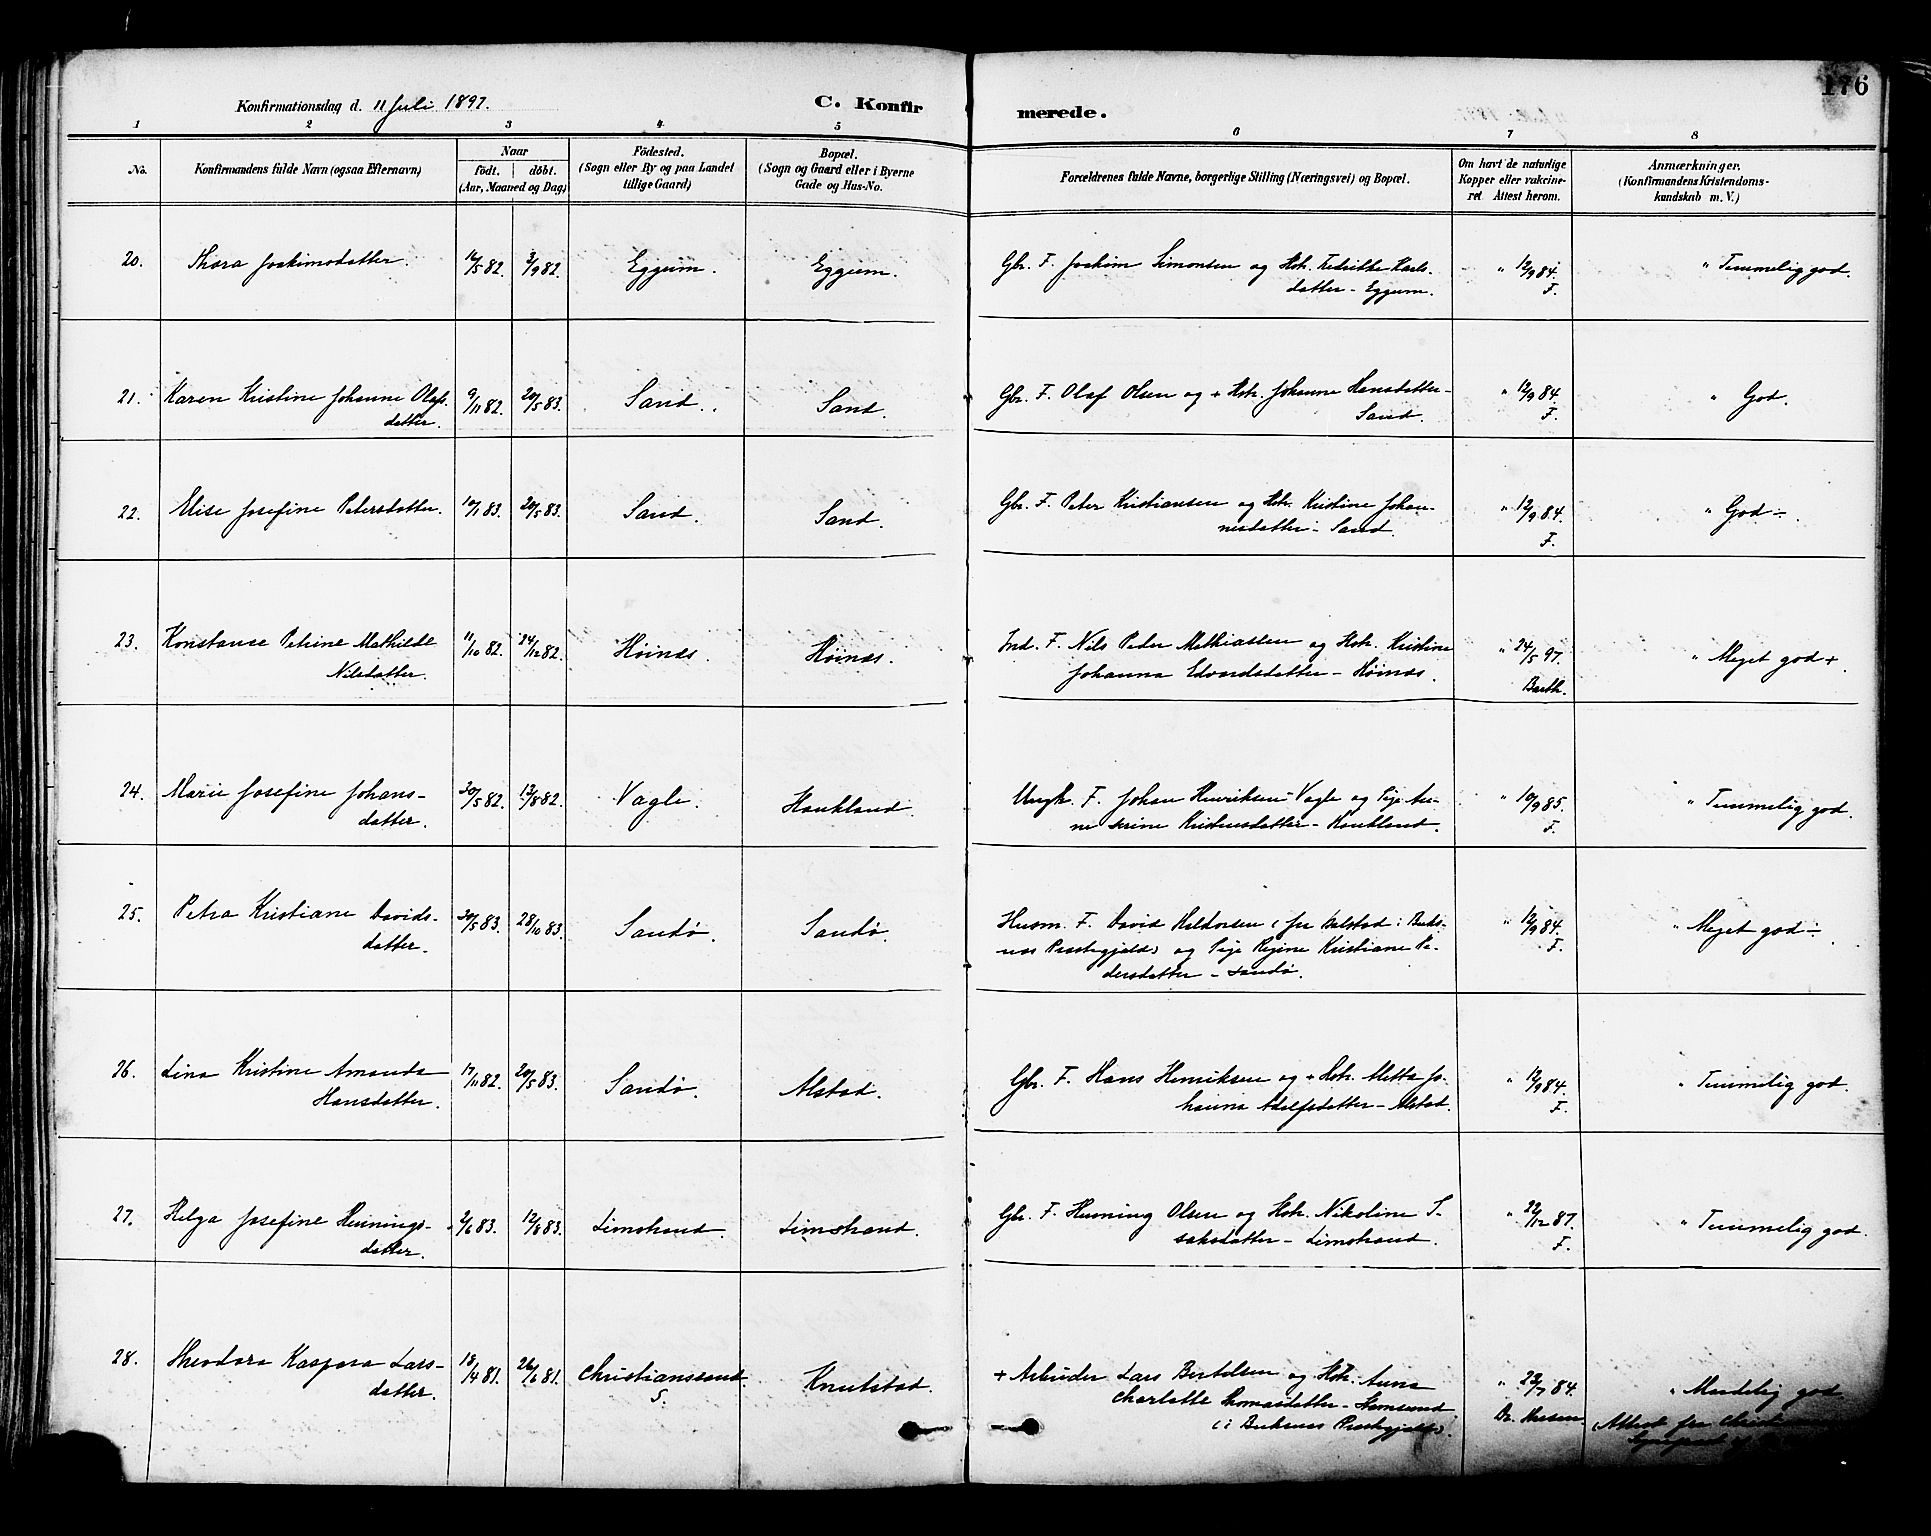 176
Konfirmationsdag d. 11 Juli 1897. C. Konfirmerede.
1 2 3 4 5 6 7 8
No. Konfirmandens fulde Navn (ogsaa Efternavn) Naar födt. döbt. (Aar, Maaned og Dag) Födested. (Sogn eller By og paa Landet tillige Gaard) Bopæl. (Sogn og Gaard eller i Byerne Gade og Hus-No. Forældrenes fulde Navne, borgerlige Stilling (Næringsvei) og Bopæl. Om havt de naturlige Kopper eller vakcineret Attest herom. Anmærkninger. (Konfirmandens Kristendomskundskab m. V.)
20. Thora Joakimsdatter. 16/5 82. 3/9 82. Eggum. Eggum. Gbr. F. Joakim Simonsen og Hstr. Fredrikke Karls- " 12/9 84. " Temmelig god.
datter - Eggum. F.
21. Karen Kristine Johanne Olafs- 9/11 82. 20/5 83. Sand. Sand. Gbr. F. Olaf Olsen og + Hstr. Johanne Hansdatter- " 12/9 84. " God.
datter. Sand. F.
22. Elise Josefine Petersdatter. 10/1 83. 20/5 83. Sand. Sand. Gbr. F. Peter Kristiansen og Hstr. Kristine Johan- " 12/9 84. " God ÷.
nesdatter - Sand. F.
23. Konstance Petrine Mathilde 11/10 82. 24/12 82. Höinæs. Höinæs. Ind. F. Nils Peder Mathiassen og Hstr. Kristine " 24/5 97. " Meget god +
Nilsdatter. Johanna Edvardsdatter - Höinæs. Barth.
24. Marie Josefine Johans- 30/5 82. 13/8 82. Vagle. Haukland. Ungk. F. Johan Henriksen - Vagle og Pige An- " 10/9 85. " Temmelig god.
datter. ne Kristensdatter - Haukland. F.
25. Petra Kristiane Davids- 30/5 83. 28/10 83. Sandö. Sandö. Husm. F. David Haldorsen (fra Balstad i Buks- " 12/9 84. " Meget god ÷
datter. næs Præstegjeld) og Pige Regine Kristiane Pe- F.
dersdatter - Sandö.
26. Lina Kristine Amanda 17/11 82. 20/5 83. Sandö. Alstad. Gbr. F. Hans Henriksen og + Hstr. Mette Jo- " 12/9 84. " Temmelig god.
Hansdatter. hanna Adolfsdatter - Alstad. F.
27. Helga Josefine Hennings- 2/6 83. 12/8 83. Limstrand. Limstrand. Gbr. F. Henning Olsen og Hstr. Nikoline I- " 22/12 87. " Temmelig god.
datter. saksdatter - Limstrand. F.
28. Theodora Kaspara Lars- 18/4 81. 26/6 81. Christianssund. Knutstad. + Arbeider Lars Bertelsen og Hstr. Anna " 22/7 84. " Maadelig god
datter. S. Charlotte Thomasdatter - Stamsund Dr.
(i Buksnæs Præstegjeld). (Attest fra